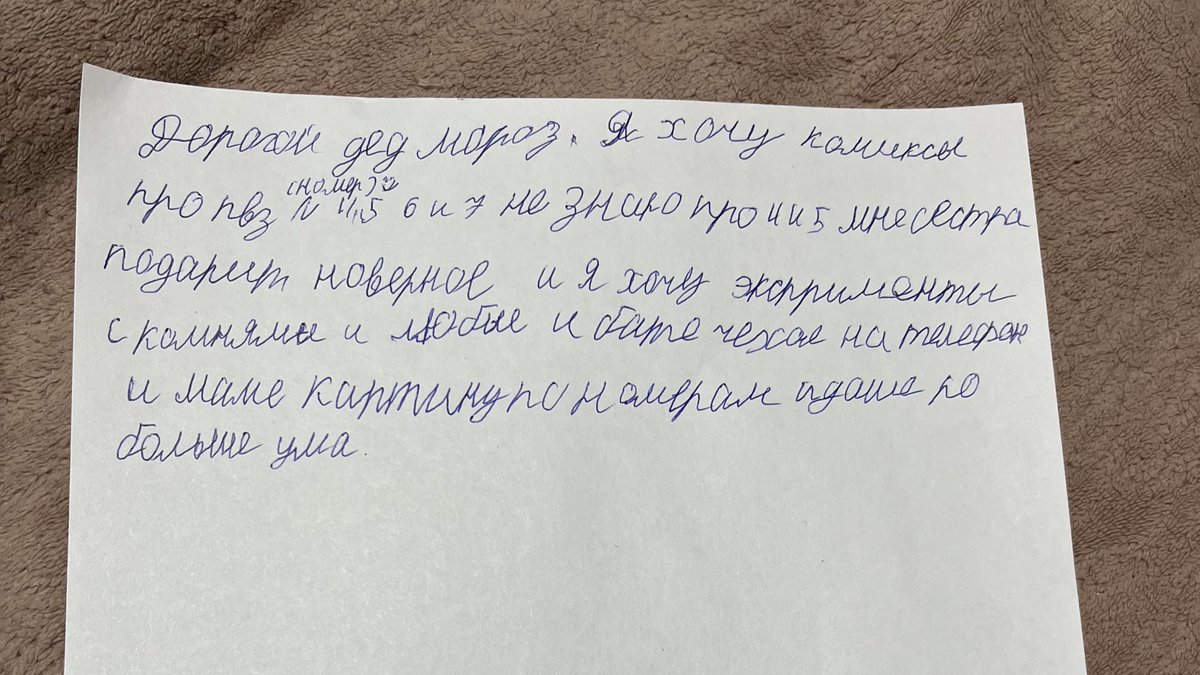 Дорогой дед мороз. Я хочу комиксы
(номер)
про пвз N 4,5 6 и 7 не знаю про 4 и 5 мне сестра
подарит новерное и я хочу эксприменты
с комнями и любые и бате чехол на телефон
и маме картину по номерам и даше по
больше ума.